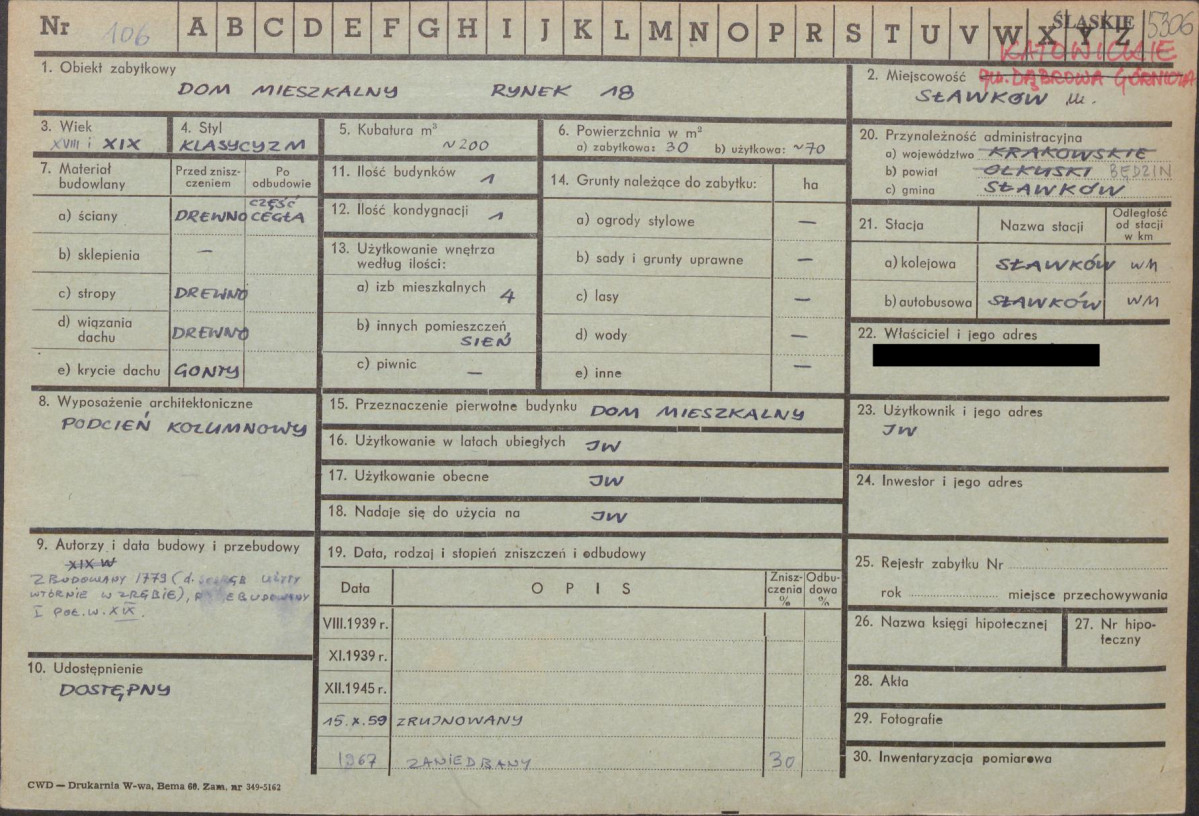 Nr 106 A B C D E F G H I J K L M N O P R S T U V W X Y Z ŚLĄSKIE 5306
KATOWICKIE
1. Obiekt zabytkowy
DOM MIESZKALNY RYNEK 18
2. Miejscowość pow. DĄBROWA GÓRNICZA
SŁAWKÓW m.
3. Wiek
XVIII i XIX
4. Styl
KLASYCYZM
5. Kubatura m³
~200
6. Powierzchnia w m²
a) zabytkowa: 30 b) użytkowa: ~70
20. Przynależność administracyjna
a) województwo KRAKOWSKIE
b) powiat OLKUSKI BĘDZIN
c) gmina SŁAWKÓW
7. Materiał budowlany
Przed zniszczeniem
Po odbudowie
a) ściany DREWNO CZĘŚĆ CEGŁA
b) sklepienia —
c) stropy DREWNO
d) wiązania dachu DREWNO
e) krycie dachu GONTY
11. Ilość budynków 1
12. Ilość kondygnacji 1
13. Użytkowanie wnętrza
według ilości:
a) izb mieszkalnych 4
b) innych pomieszczeń
SIEŃ
c) piwnic —
14. Grunty należące do zabytku: ha
a) ogrody stylowe —
b) sady i grunty uprawne —
c) lasy —
d) wody —
e) inne —
21. Stacja Nazwa stacji Odległość od stacji w km
a) kolejowa SŁAWKÓW WM
b) autobusowa SŁAWKÓW WM
22. Właściciel i jego adres
8. Wyposażenie architektoniczne
PODCIEŃ KOLUMNOWY
15. Przeznaczenie pierwotne budynku DOM MIESZKALNY
16. Użytkowanie w latach ubiegłych JW
17. Użytkowanie obecne JW
18. Nadaje się do użycia na JW
23. Użytkownik i jego adres
JW
24. Inwestor i jego adres
9. Autorzy i data budowy i przebudowy
XIX W
ZBUDOWANY 1779 (d. UŻYTY
WTÓRNIE W ZRĘBIE), PRZEBUDOWANY
I POŁ. W. XIX.
10. Udostępnienie
DOSTĘPNY
19. Data, rodzaj i stopień zniszczeń i odbudowy
Data OPIS Zniszczenia % Odbudowa %
VIII.1939 r.
XI.1939 r.
XII.1945 r.
15.X.59 ZRUJNOWANY
1967 ZANIEDBANY 30
25. Rejestr zabytku Nr
rok miejsce przechowywania
26. Nazwa księgi hipotecznej
27. Nr hipoteczny
28. Akta
29. Fotografie
30. Inwentaryzacja pomiarowa
CWD — Drukarnia W-wa, Bema 60. Zam. nr 349-5162